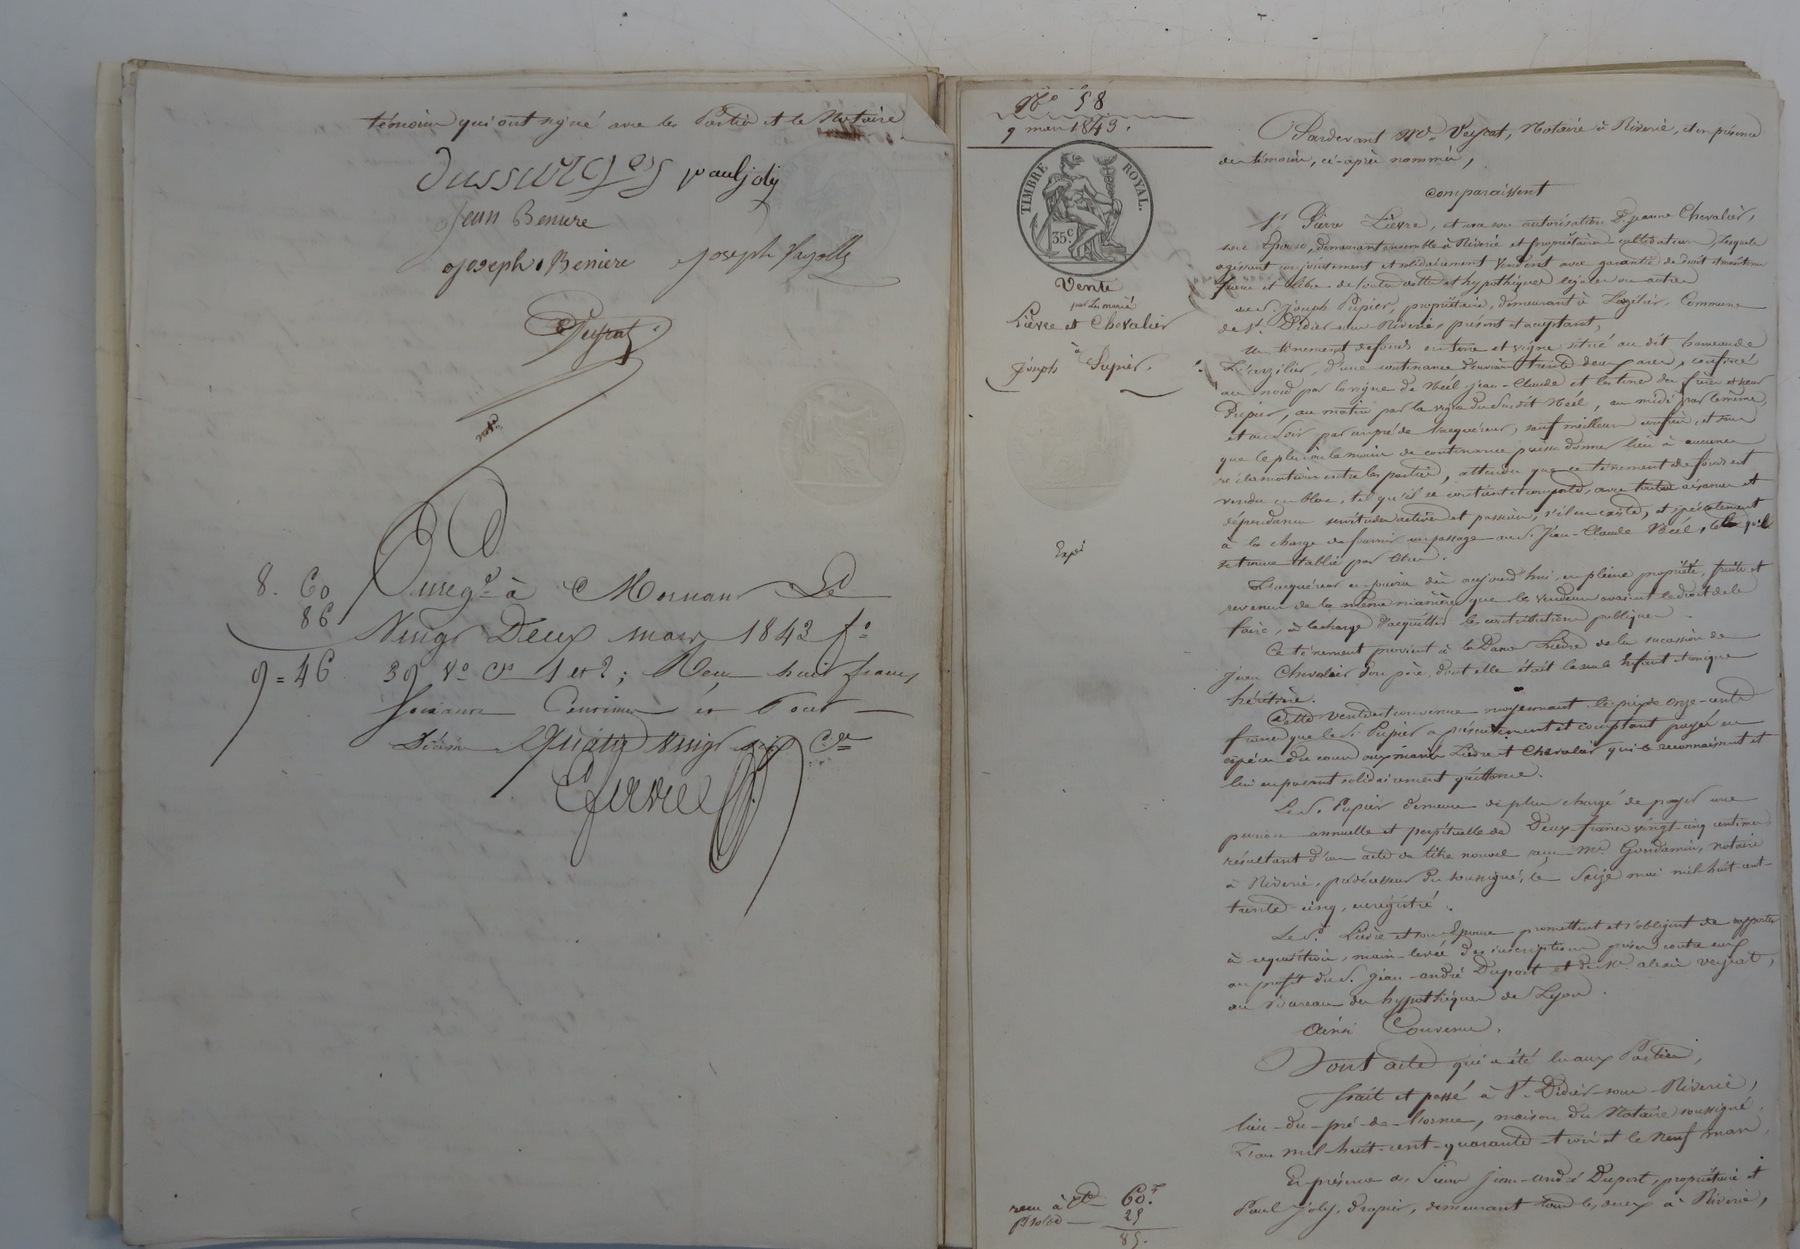 témoins qui ont signé avec les Parties et le Notaire
paul joly
jean Beniere
joseph Beniere
8. 60
86
9 = 46
Enregé à Mornant Le
Vingt Deux mars 1843 fo
39 Vo Cs 1 et 2; Reçu huit francs
Soixante Centimes et Pour
Décime Quatre Vingt six Ces
No 58
9 mars 1843.
TIMBRE ROYAL.
35c
Vente
par les mariés
Lièvre et Chevalier
à
Joseph Pupier.
Expé
reçu à Cte 60.f
25
85.
Pardevant Me Veyrat, Notaire à Riverie, et en présence
des témoins, ci-après nommés,
comparaissent
Sr Pierre Lièvre, et sous son autorisation De jeanne Chevalier,
son Epouse, demeurant ensemble à Riverie et propriétaires cultivateurs, lesquels
agissant conjointement et solidairement vendent avec garantie de droit
franc et libre de toutes dettes et hypothèques légales ou autres
au S. Joseph Pupier, propriétaire, demeurant à Commune
de St Didier-sous-Riverie, présent et acceptant,
un tènement de fonds en terre et vigne situé au dit hameau de
d'une contenance d'environ trente deux ares, confiné
au nord par la vigne de Néel jean-Claude et les terres des frères et sœur
Pupier, au matin par la vigne du susdit Néel, au midi par le même,
et au soir par un pré de l'acquéreur, sauf meilleurs confins, et sans
que le plus ou le moins de contenance puisse donner lieu à aucune
réclamation entre les parties, attendu que ce tènement de fonds est
vendu en bloc, tel qu'il se contient et comporte, avec toutes aisances et
dépendances servitudes actives et passives, s'il en existe, et spécialement
à la charge de fournir un passage au S. Jean-Claude Néel, tel qu'il
se trouve établi par titre.
L'acquéreur en jouira dès aujourd'hui, en pleine propriété, fruits et
revenus de la même manière que les vendeurs avaient le droit de le
faire, à la charge d'acquitter les contributions publiques.
Ce tènement provient à la Dame Lièvre de la succession de
jean Chevalier son père, dont elle était la seule enfant et unique
héritière.
Cette vente est convenue moyennant le prix de onze-cents
francs que le S. Pupier a présentement et comptant payés en
espèces du cours aux mariés Lièvre et Chevalier qui le reconnaissent et
lui en passent solidairement quittance.
Le S. Pupier demeure de plus chargé de payer une
pension annuelle et perpétuelle de Deux francs vingt-cinq centimes
résultant d'un acte de titre nouvel reçu Me Gondamin, notaire
à Riverie, prédécesseur du soussigné, le Seize mai mil-huit-cent-
trente-cinq, enregistré.
Le S. Lièvre et son Epouse promettent et s'obligent de rapporter
à réquisition, main-levée des inscriptions prises contre eux
au profit du S. Jean-andré Duport et du Me alexis Veyrat,
au bureau des hypothèques de Lyon.
ainsi Convenu.
Dont acte qui a été lu aux Parties,
fait et passé à St Didier-sous-Riverie,
lieu-du-pré-de-l'orme, maison du Notaire soussigné.
L'an mil-huit-cent-quarante-trois et le neuf mars,
En présence des Sieurs jean-andré Duport, propriétaire et
Paul Joly, drapier, demeurant tous les deux à Riverie,